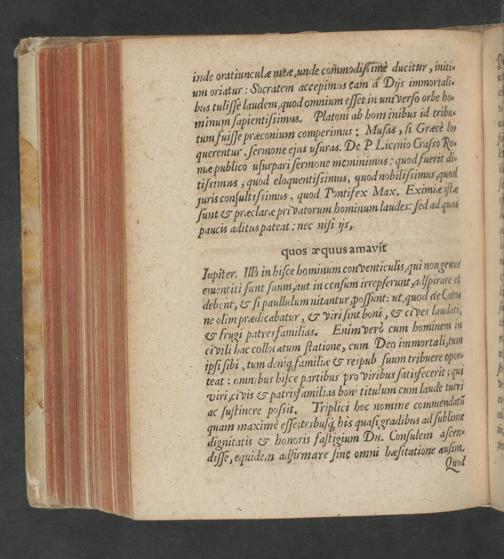 inde oratiunculæ meæ, unde commodissimè ducitur, initi-
um oriatur: Socratem accepimus eam â Dijs immortali-
bus tulisse laudem, quod omnium esset in universo orbe ho-
minum sapientissimus. Platoni ab hominibus id tribu-
tum fuisse præconium comperimus: Musas, si Græcè lo
querentur, sermone ejus usuras. De P. Licinio Crasso Ro-
mæ publico usurpari sermone meminimus: quod fuerit di-
tissimus, quod eloquentissimus, quod nobilissimus, quod
juris consultissimus, quod Pontifex Max. Eximiæ istæ
sunt & præclaræ privatorum hominum laudes: sed ad quas
paucis aditus pateat: nec nisi ijs,
quos æquus amavit
Iupiter. Illò in hisce hominum conventiculis, qui non genus
ementiti sunt suum, aut in censum irrepserunt, adspirare et
debent, & si paullulum nitantur, possunt: ut, quod de Cato
ne olim prædicabatur, & viri sint boni, & cives laudati,
& frugi patresfamilias. Enimverò cum hominem in
civili hac collocatum statione, cum Deo immortali, tum
ipsi sibi, tum deniq; familiæ & reipub suum tribuere opor-
teat: omnibus hisce partibus pro viribus satisfecerit: qui
viri, civis & patrisfamilias boni titulum cum laude tueri
ac sustinere possit. Triplici hoc nomine commendatũ
quam maximè esse: tribusq; his quasi gradibus ad sublime
dignitatis & honoris fastigium Dn. Consulem ascen-
disse, equidem adfirmare sine omni hæsitatione ausim.
Quod